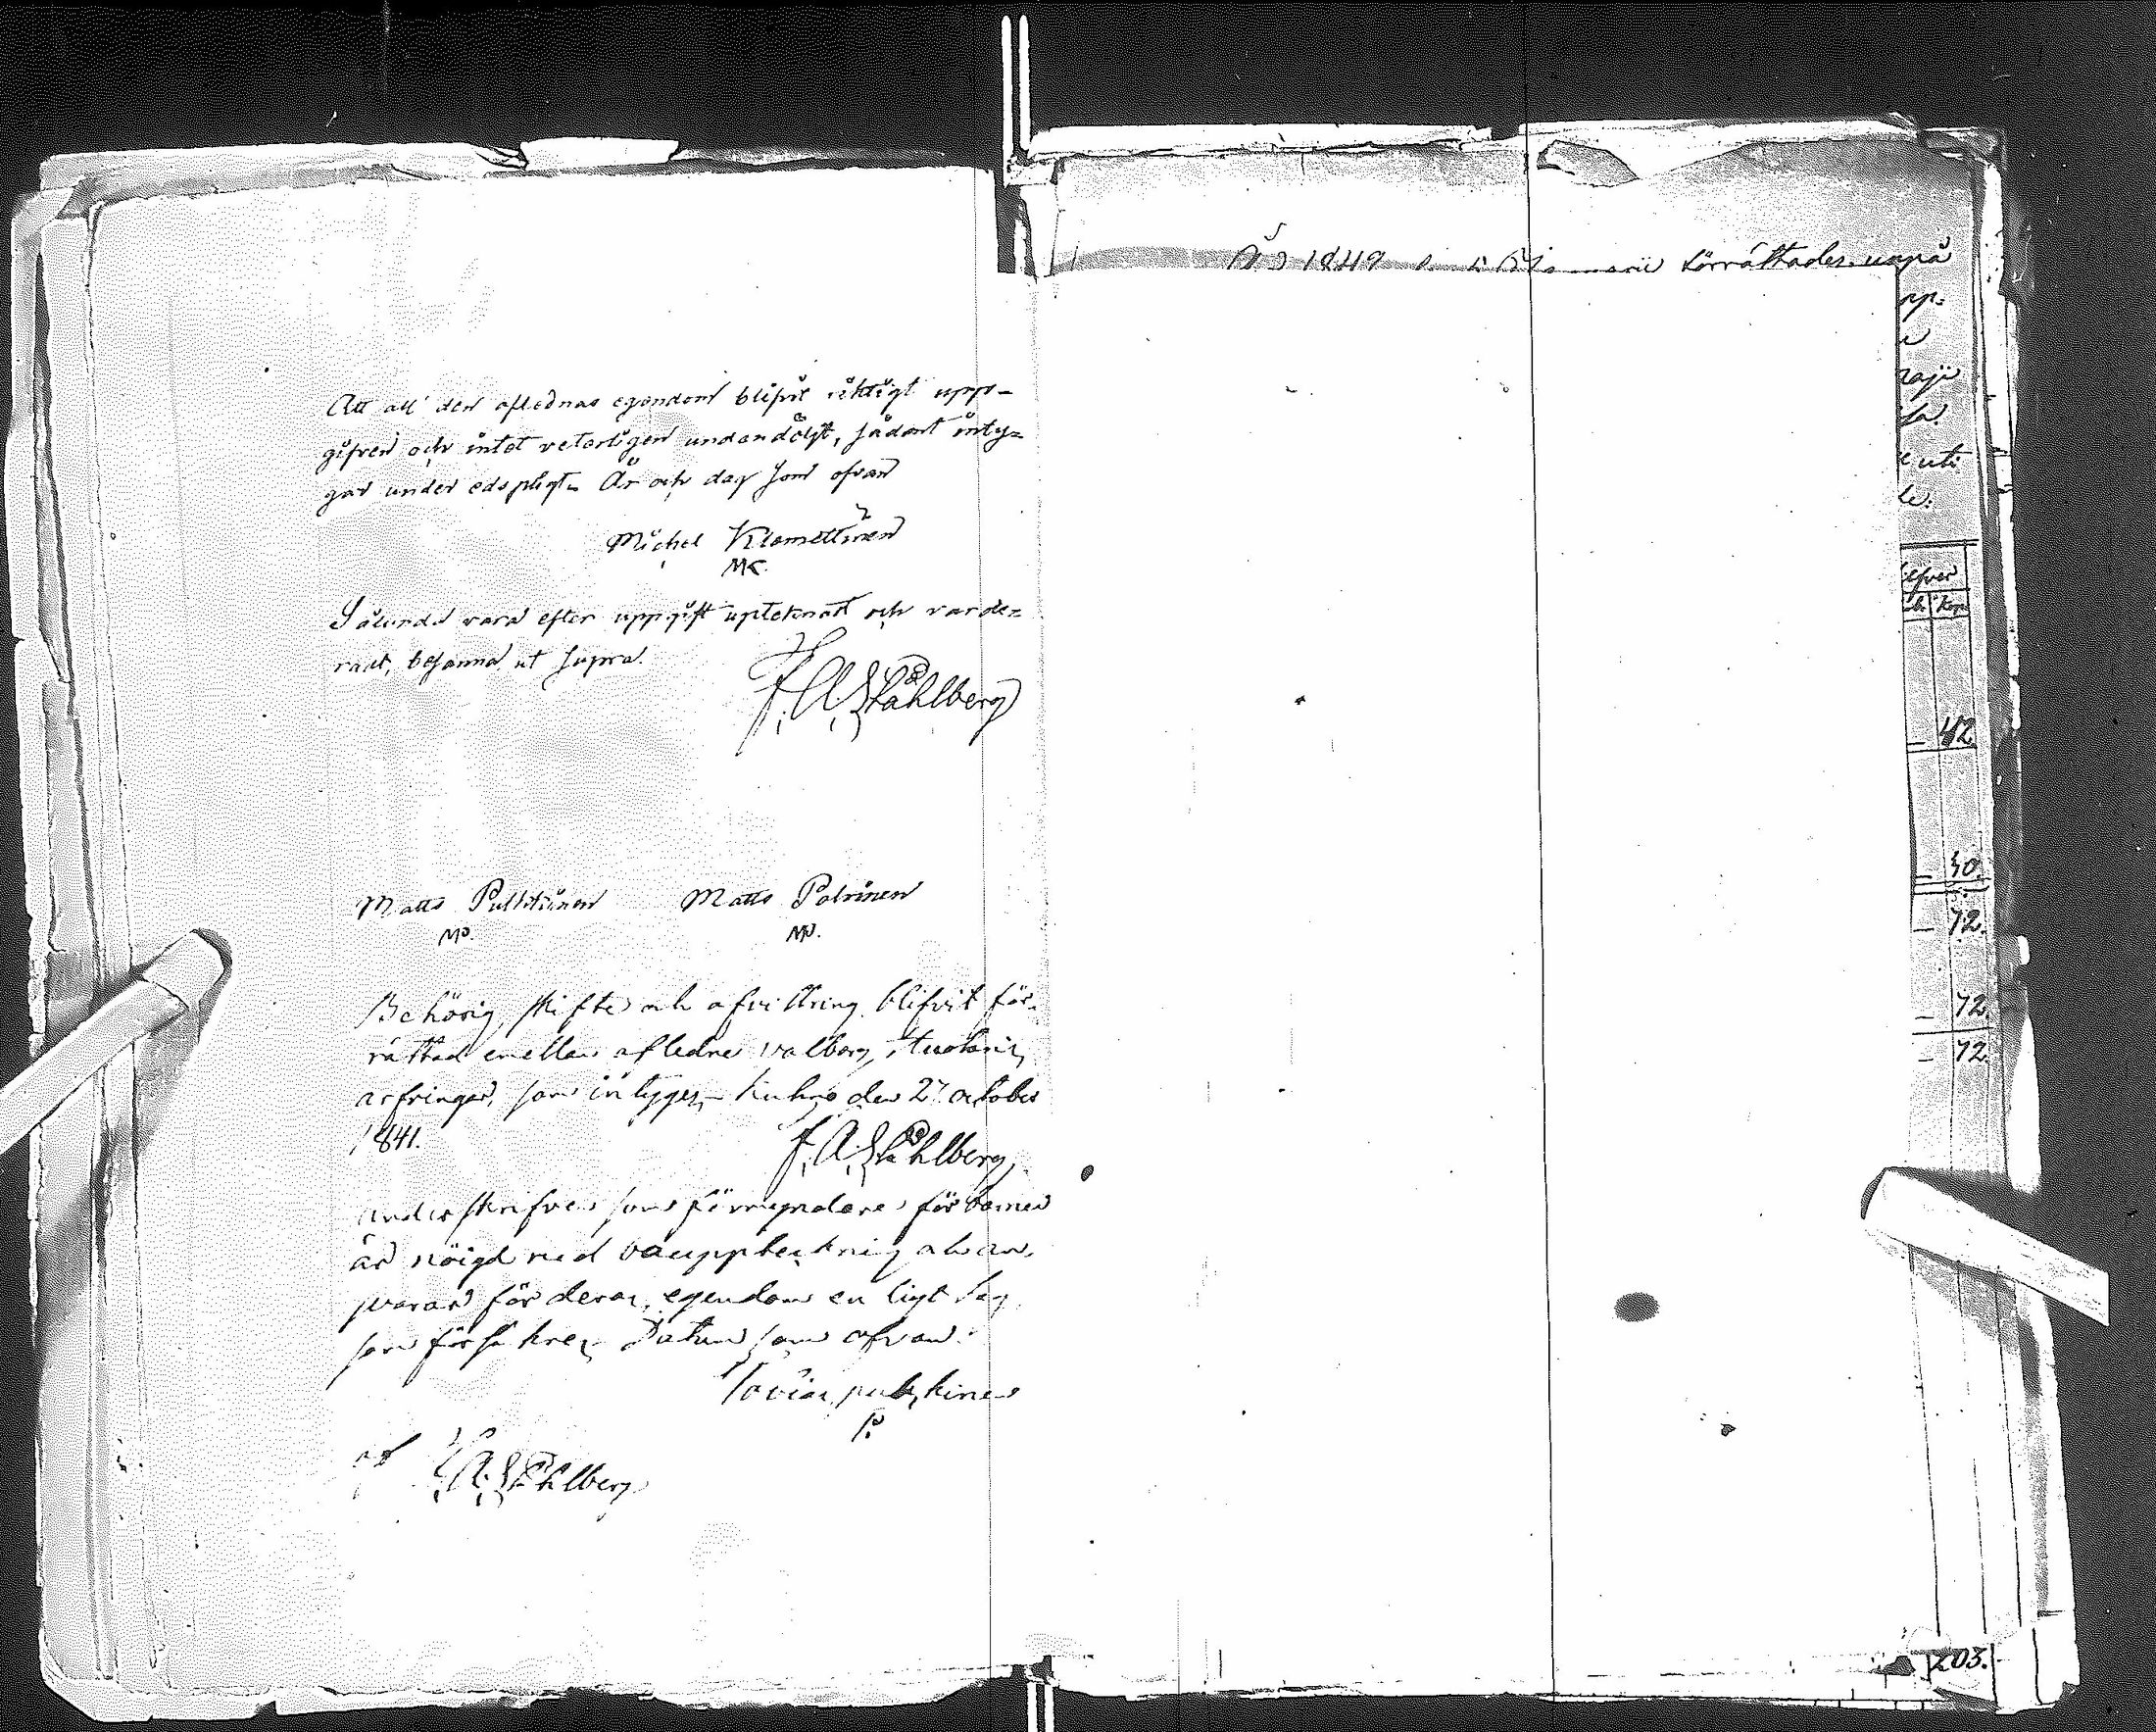 Att all den aflednas egendom blifvit riktigt upp-
gifven och intet veterligen undandöljt, sådant inty-
gar under edsplígt. År och dag som ofvan
Michel Klemettinen
MK.
Sålunda vara efter uppgift upteknat och värde-
radt, besanna ut supra.
F. A. Ståhlberg
Matts Pulkkinen Matts Polvinen
MP. MP.
Behörig skifte och afvittring blifvit för-
rättad emellan afledne Valborg
arfvingar, som intygges, Kuhmo den 27 october
1841. F. A. Ståhlberg
Underskrifven som förmyndare för barnen
är nöigd med bouppteckning och an-
svarar för deras egendom en ligt Lag,
som försäkras Datum som ofvan.
Tobias pulkkinen
P.
af F. A. Ståhlberg
År 1849 förrättades uppå
pp.
e uti
le.
Silfver
Kop.
42
30.
72.
72.
72.
203.